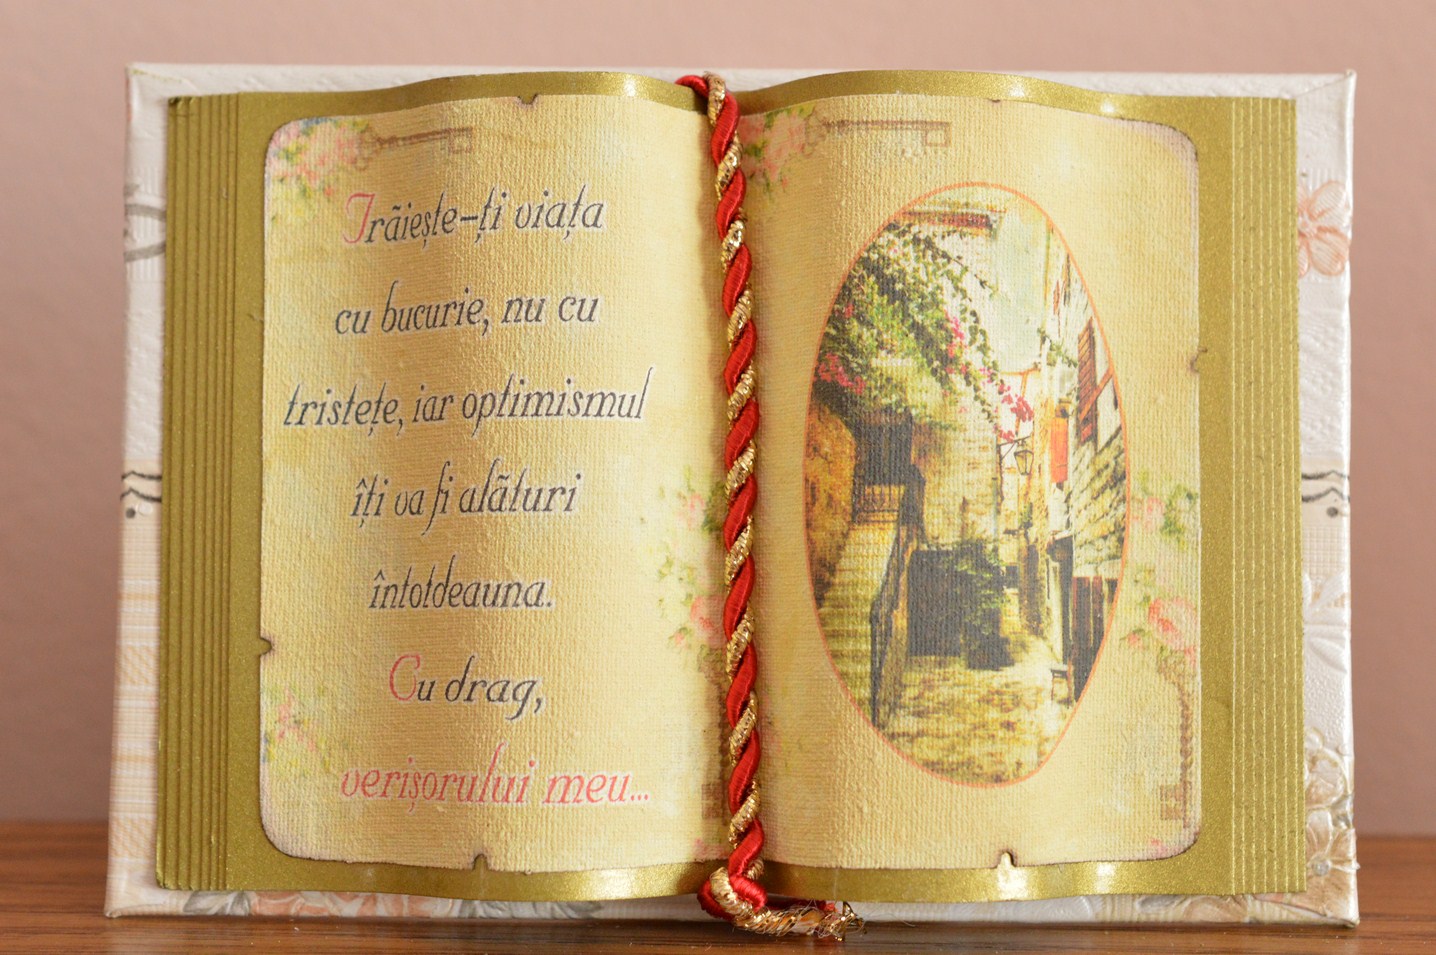 Trăiește-ți viața
cu bucurie, nu cu
tristețe, iar optimismul
îți va fi alături
întotdeauna.
Cu drag,
verișorului meu...